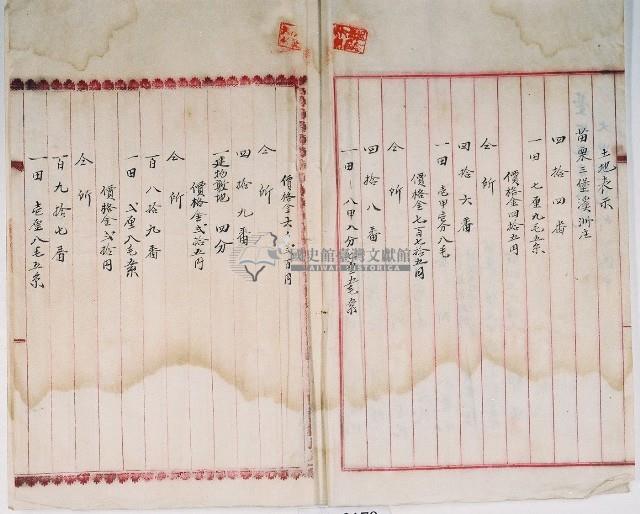 土地表示
苗栗三堡溪洲庄
四拾四番
一田 七厘九毛五糸
價格金四拾五円
仝所
四拾六番
一田 壱甲壱分八毛
價格金七百七拾五円
仝所
四拾八番
一田 八甲八分
價格金六
百円
仝所
四拾九番
一建物敷地 四分
價格金弐拾五円
仝所
百八拾九番
一田 弐厘八毛糸
價格金弐拾円
仝所
百九拾七番
一田 壱厘八毛五糸
國史館臺灣文獻館
TAIWAN HISTORICA